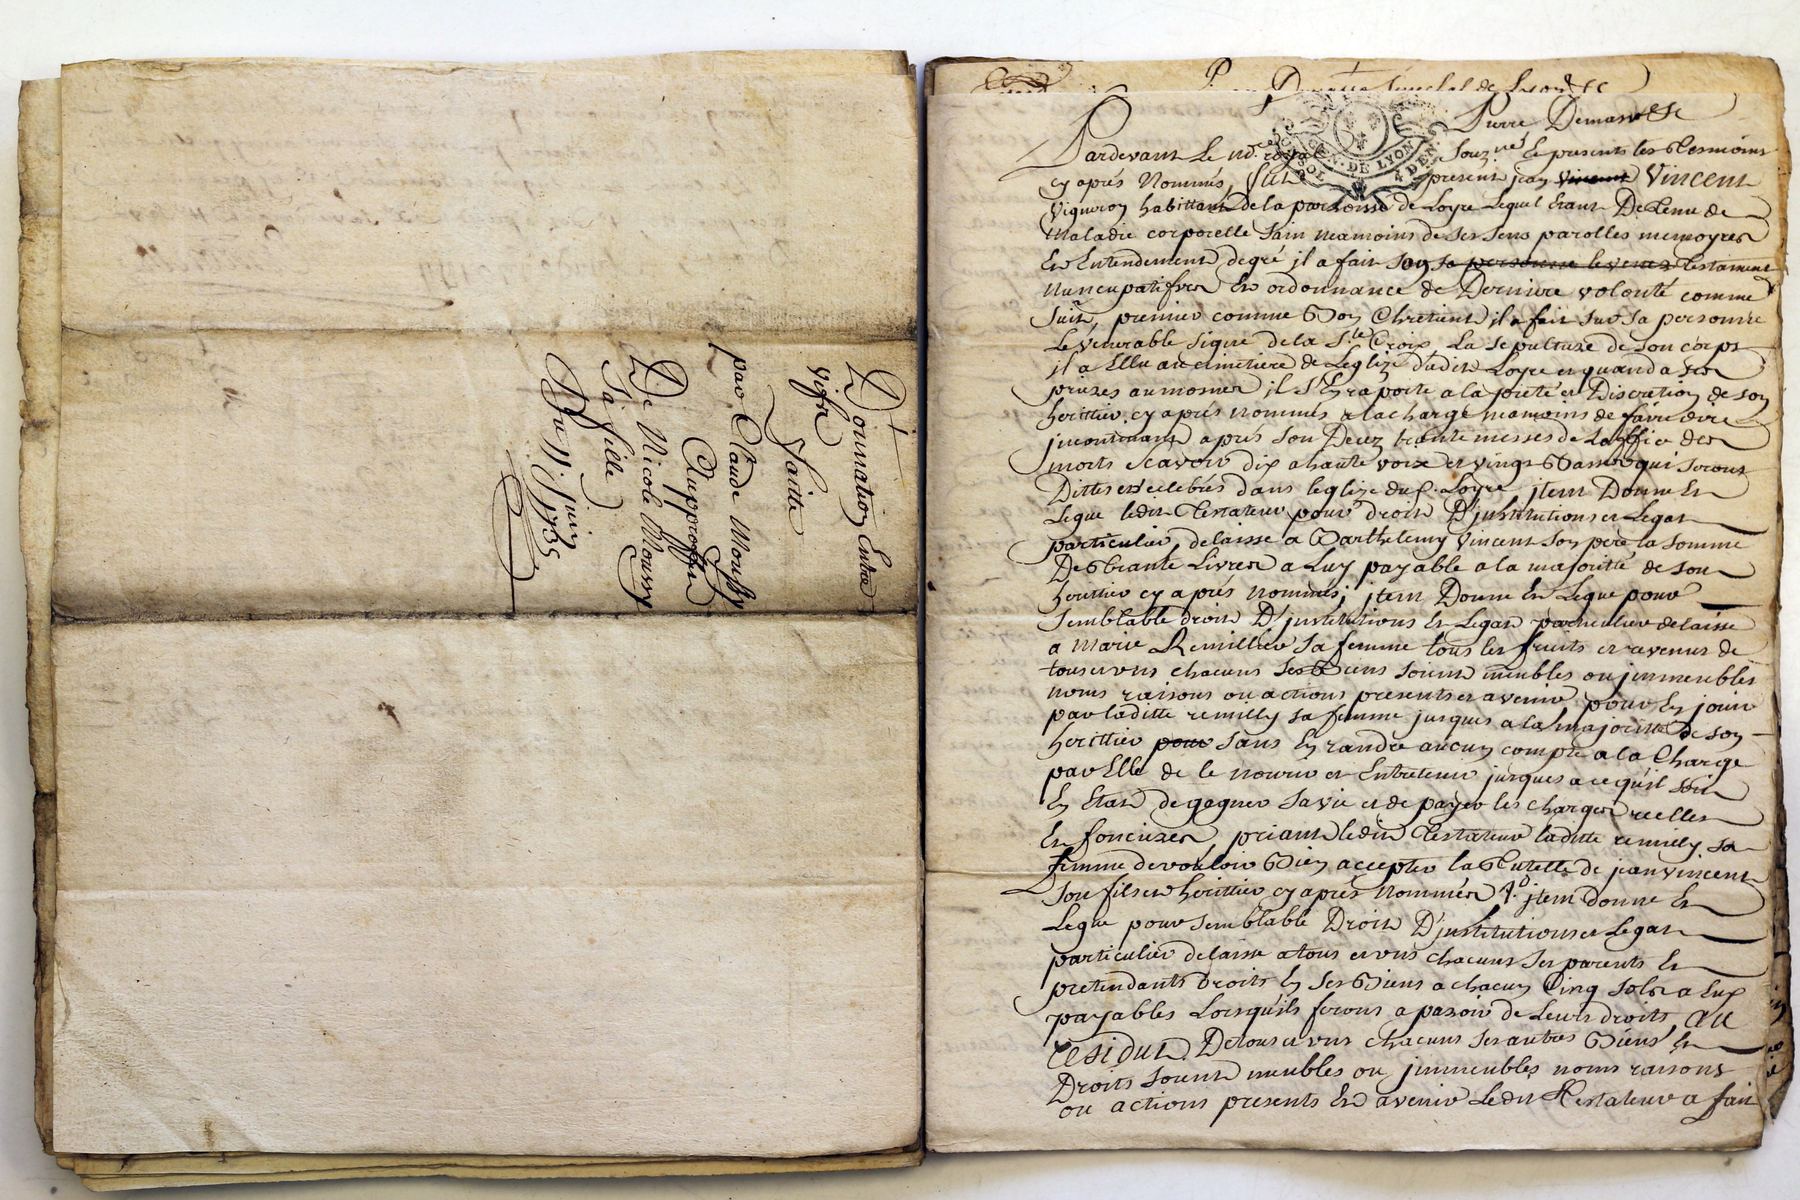 Donnation Entre
vifs
faitte
par Claude Moussy
De Nicole Moussy
Sa fille
Du 11. juin 1735
Seneschal de Lyon &c
Pierre Demasse &c
GEN. DE LYON
SOL DEN
Pardevant Le no.re royal souz.né & presents les tesmoins
cy aprés Nommés, fut present jean Vincent
Vigneron habittant de la parroisse de Loyre Lequel Etant Detenu de
Maladie corporelle Sain neamoins de ses sens parolles memoyres
Et Entendement de gré il a fait son testament
Nuncupatif Et ordonnance de Derniere volonté comme
Suit, premier comme Bon Chretient il a fait sur sa personne
Le venerable signe de la S.te Croix La sepulture de son corps
il a Ellu au cimitiere de Leglize dudit Loyre et quand a ses
prieres aumosnes il s'En raporte a la pieté et Discretion de son
heritier cy aprés nommés a la charge neamoins de faire dire
incontinant aprés son Decez trante messes de Loffice des
morts scavoir dix a haute voix et vingt Basse qui seront
Dittes et celebrés dans leglize dud. Loyre item Donne En
Legue ledit Testateur pour droit D'institutions et Legat
particulier, delaisse a Barthelemy Vincent son pere la somme
De trante Livres a Luy payable a la majorité de son
heritier cy aprés nommés; item Donne En Legue pour
Semblable droit D'institutions Et Legat particulier delaisse
a Marie Remillier sa femme tous les fruits et revenus de
tous et uns chacuns ses Biens soient meubles ou immeubles
noms raisons ou actions presents et avenir pour En jouir
par laditte remilly sa femme jusques a la majoritté de son
heritier pour sans En randre aucun compte a la Charge
par Elle de le nourir et Entretenir jusques a ce qu'il soit
En Etat de gagner sa vie et de payer les charges reelles
Et foncieres, priant ledit Testateur laditte remilly sa
femme de vouloir Bien accepter la Tutelle de jean vincent
Son fils et heritier cy aprés nommés item donne En
Legue pour semblable Droit D'institutions et Legat
particulier delaisse a tous et uns chacuns ses parents Et
pretendants droits En ses Biens a chacun Cinq sols a Eux
payables Lorsqu'ils feront aparoir de Leurs droits, AU
Residut De tous et uns chacuns ses autres Biens Et
Droits soient meubles ou immeubles noms raisons
ou actions presents Et avenir Ledit Testateur a fait